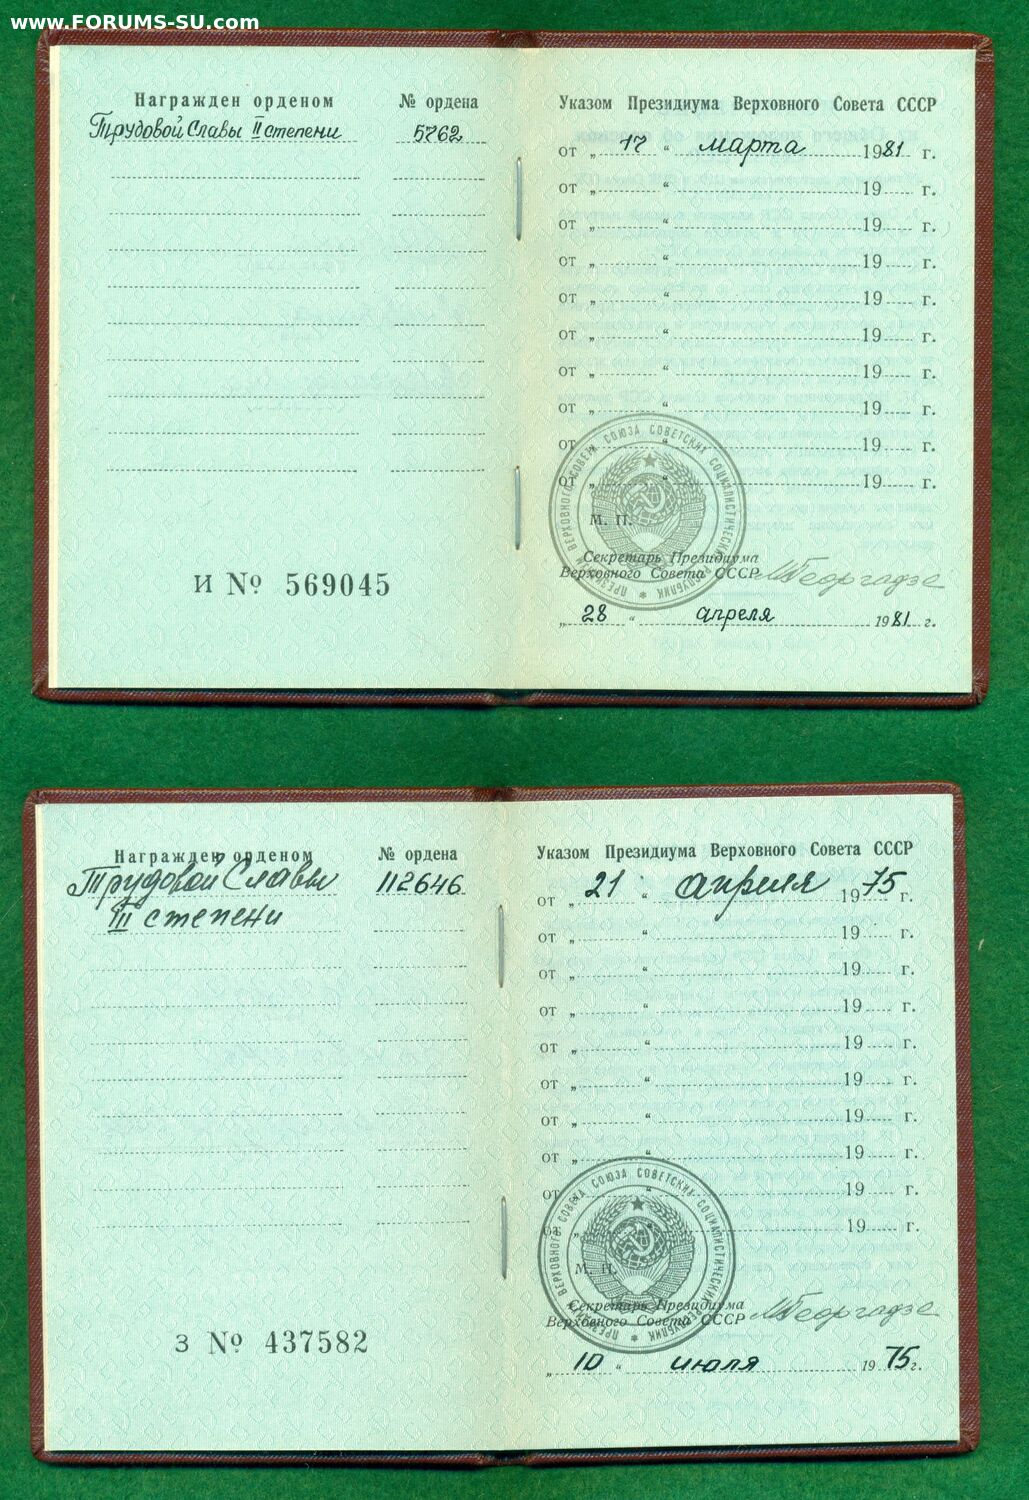 www.FORUMS-SU.com
Награжден орденом
№ ордена
Трудовой Славы II степени
5762
Указом Президиума Верховного Совета СССР
от „ 17 “ марта 1981 г.
от „ “ 19 г.
от „ “ 19 г.
от „ “ 19 г.
от „ “ 19 г.
от „ “ 19 г.
от „ “ 19 г.
от „ “ 19 г.
от „ “ 19 г.
от „ “ 19 г.
ПРЕЗИДИУМ ВЕРХОВНОГО СОВЕТА СОЮЗА СОВЕТСКИХ СОЦИАЛИСТИЧЕСКИХ РЕСПУБЛИК
М. П.
Секретарь Президиума
Верховного Совета СССР
МГеоргадзе
„ 28 “ апреля 1981 г.
И № 569045
Награжден орденом
№ ордена
Трудовой Славы
III степени
112646
Указом Президиума Верховного Совета СССР
от „ 21 “ апреля 1975 г.
от „ “ 19 г.
от „ “ 19 г.
от „ “ 19 г.
от „ “ 19 г.
от „ “ 19 г.
от „ “ 19 г.
от „ “ 19 г.
от „ “ 19 г.
от „ “ 19 г.
ПРЕЗИДИУМ ВЕРХОВНОГО СОВЕТА СОЮЗА СОВЕТСКИХ СОЦИАЛИСТИЧЕСКИХ РЕСПУБЛИК
М. П.
Секретарь Президиума
Верховного Совета СССР
МГеоргадзе
„ 10 “ июля 1975 г.
З № 437582